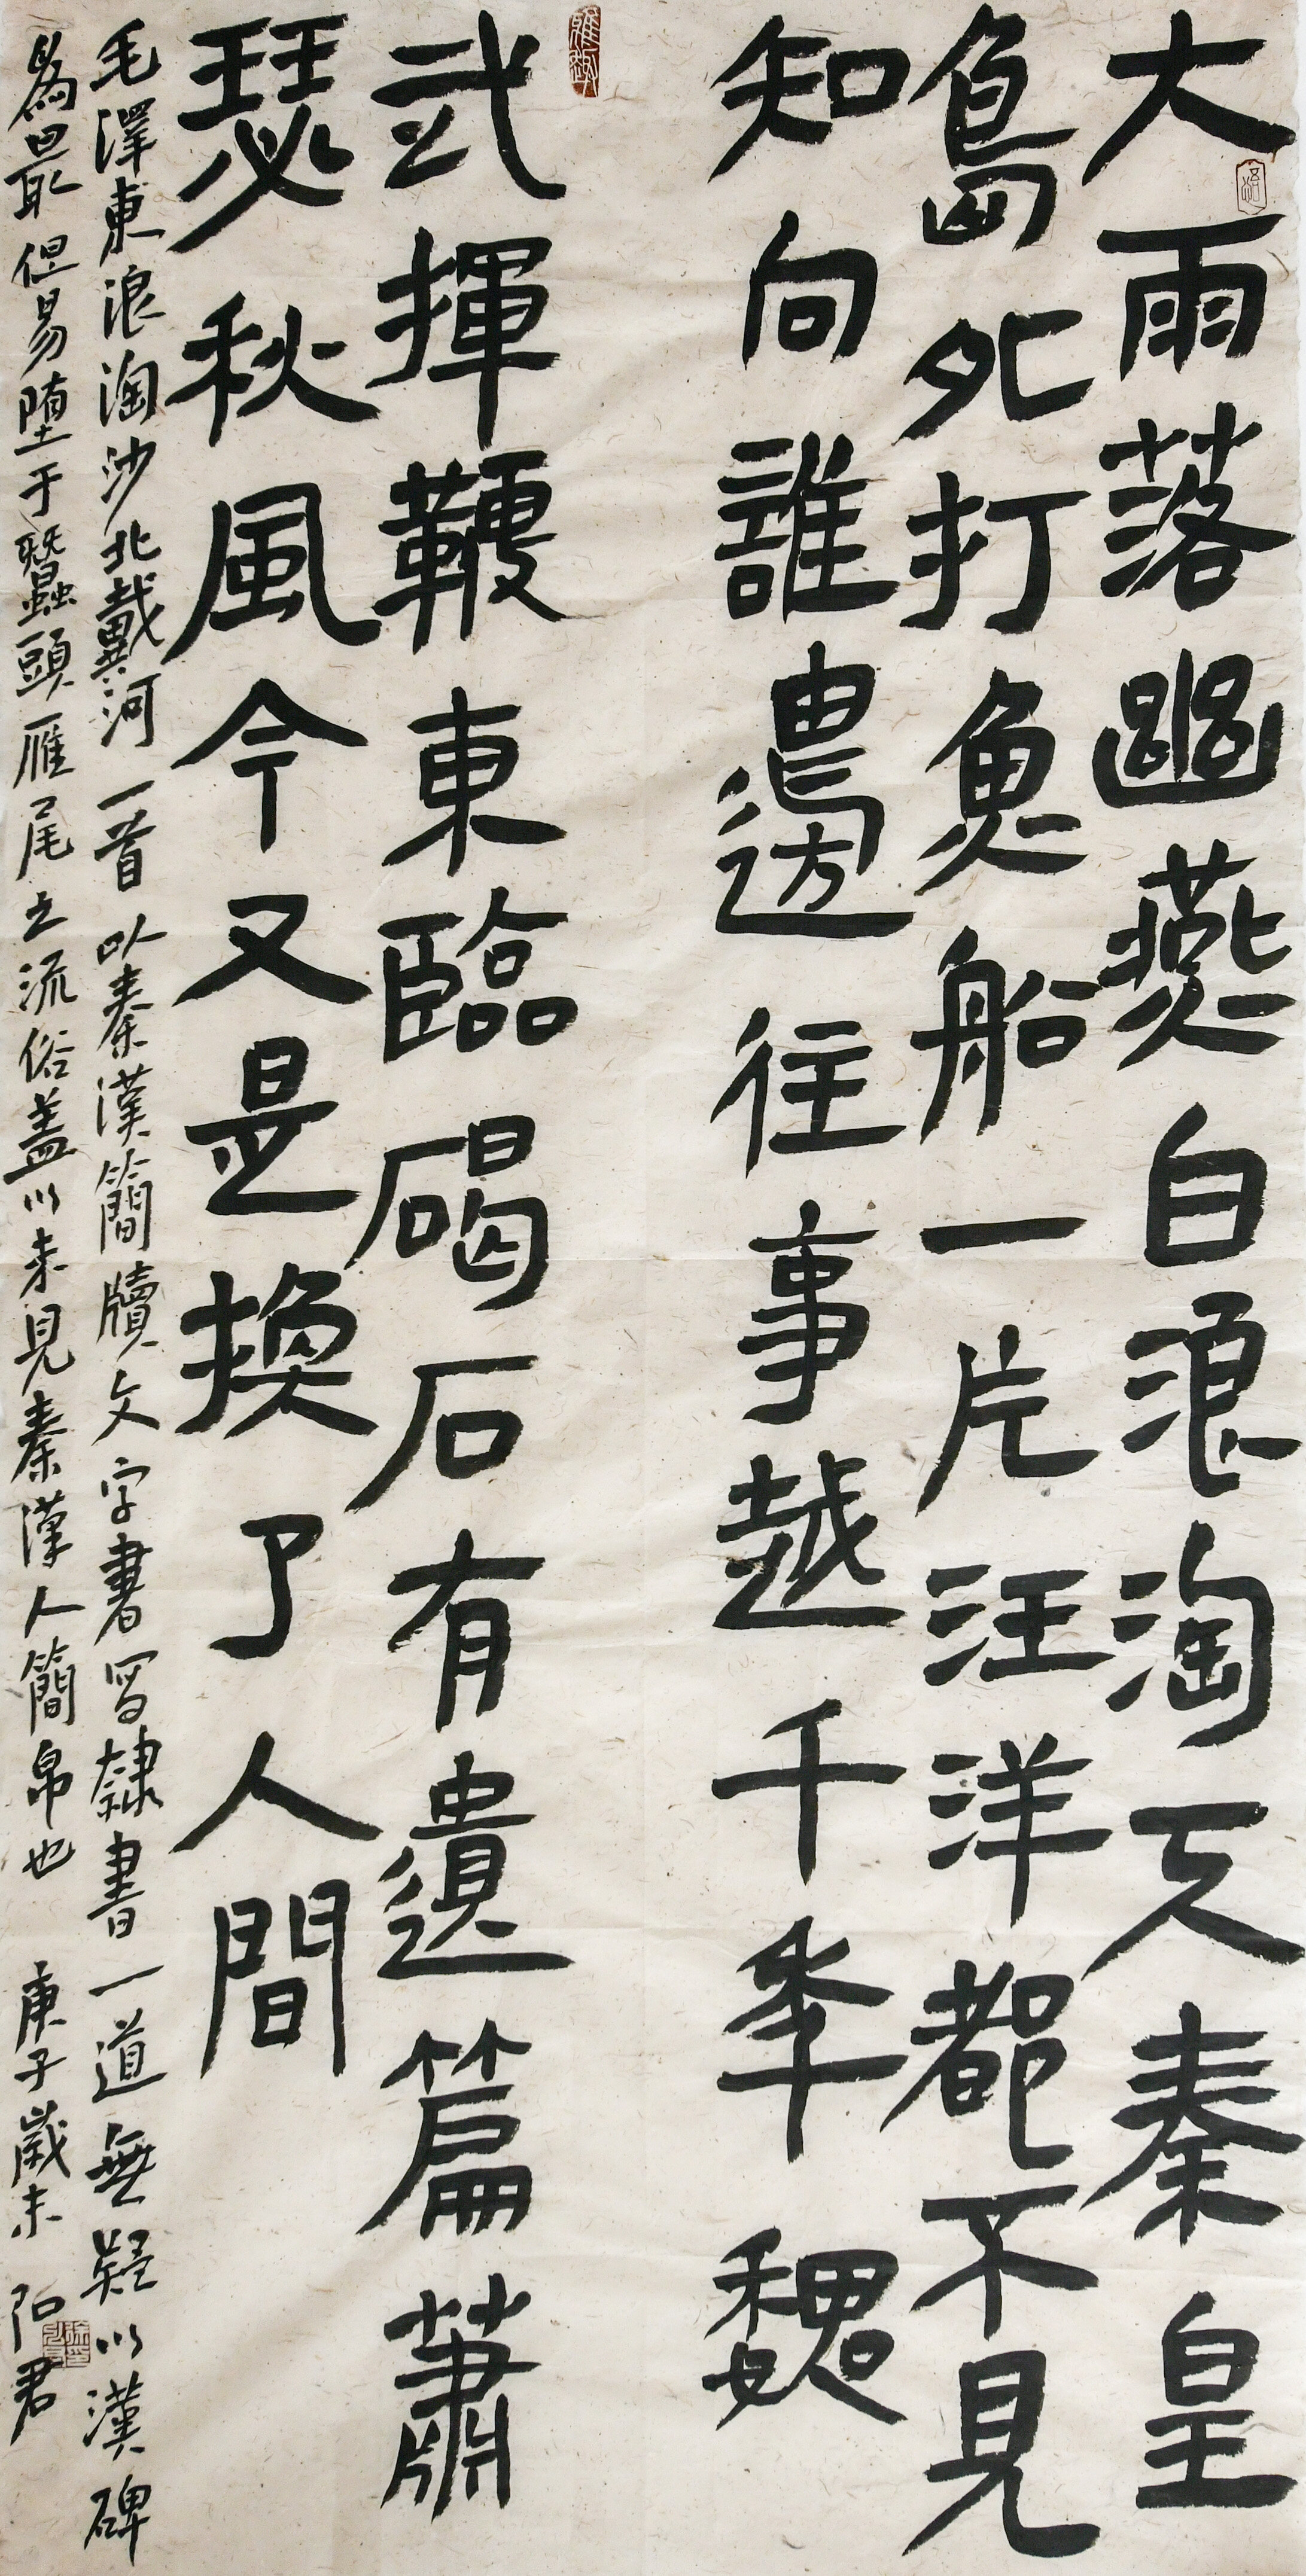 大雨落幽燕白浪淘天秦皇
島外打魚船一片汪洋都不見
知向誰邊往事越千年魏
武揮鞭東臨碣石有遺篇蕭
瑟秋風今又是換了人間
毛澤東浪淘沙北戴河一首以秦漢簡牘文字書寫隸書一道無疑以漢碑
為最但易墮于蠶頭雁尾之流俗蓋以未見秦漢人簡帛也 庚子歲末 君